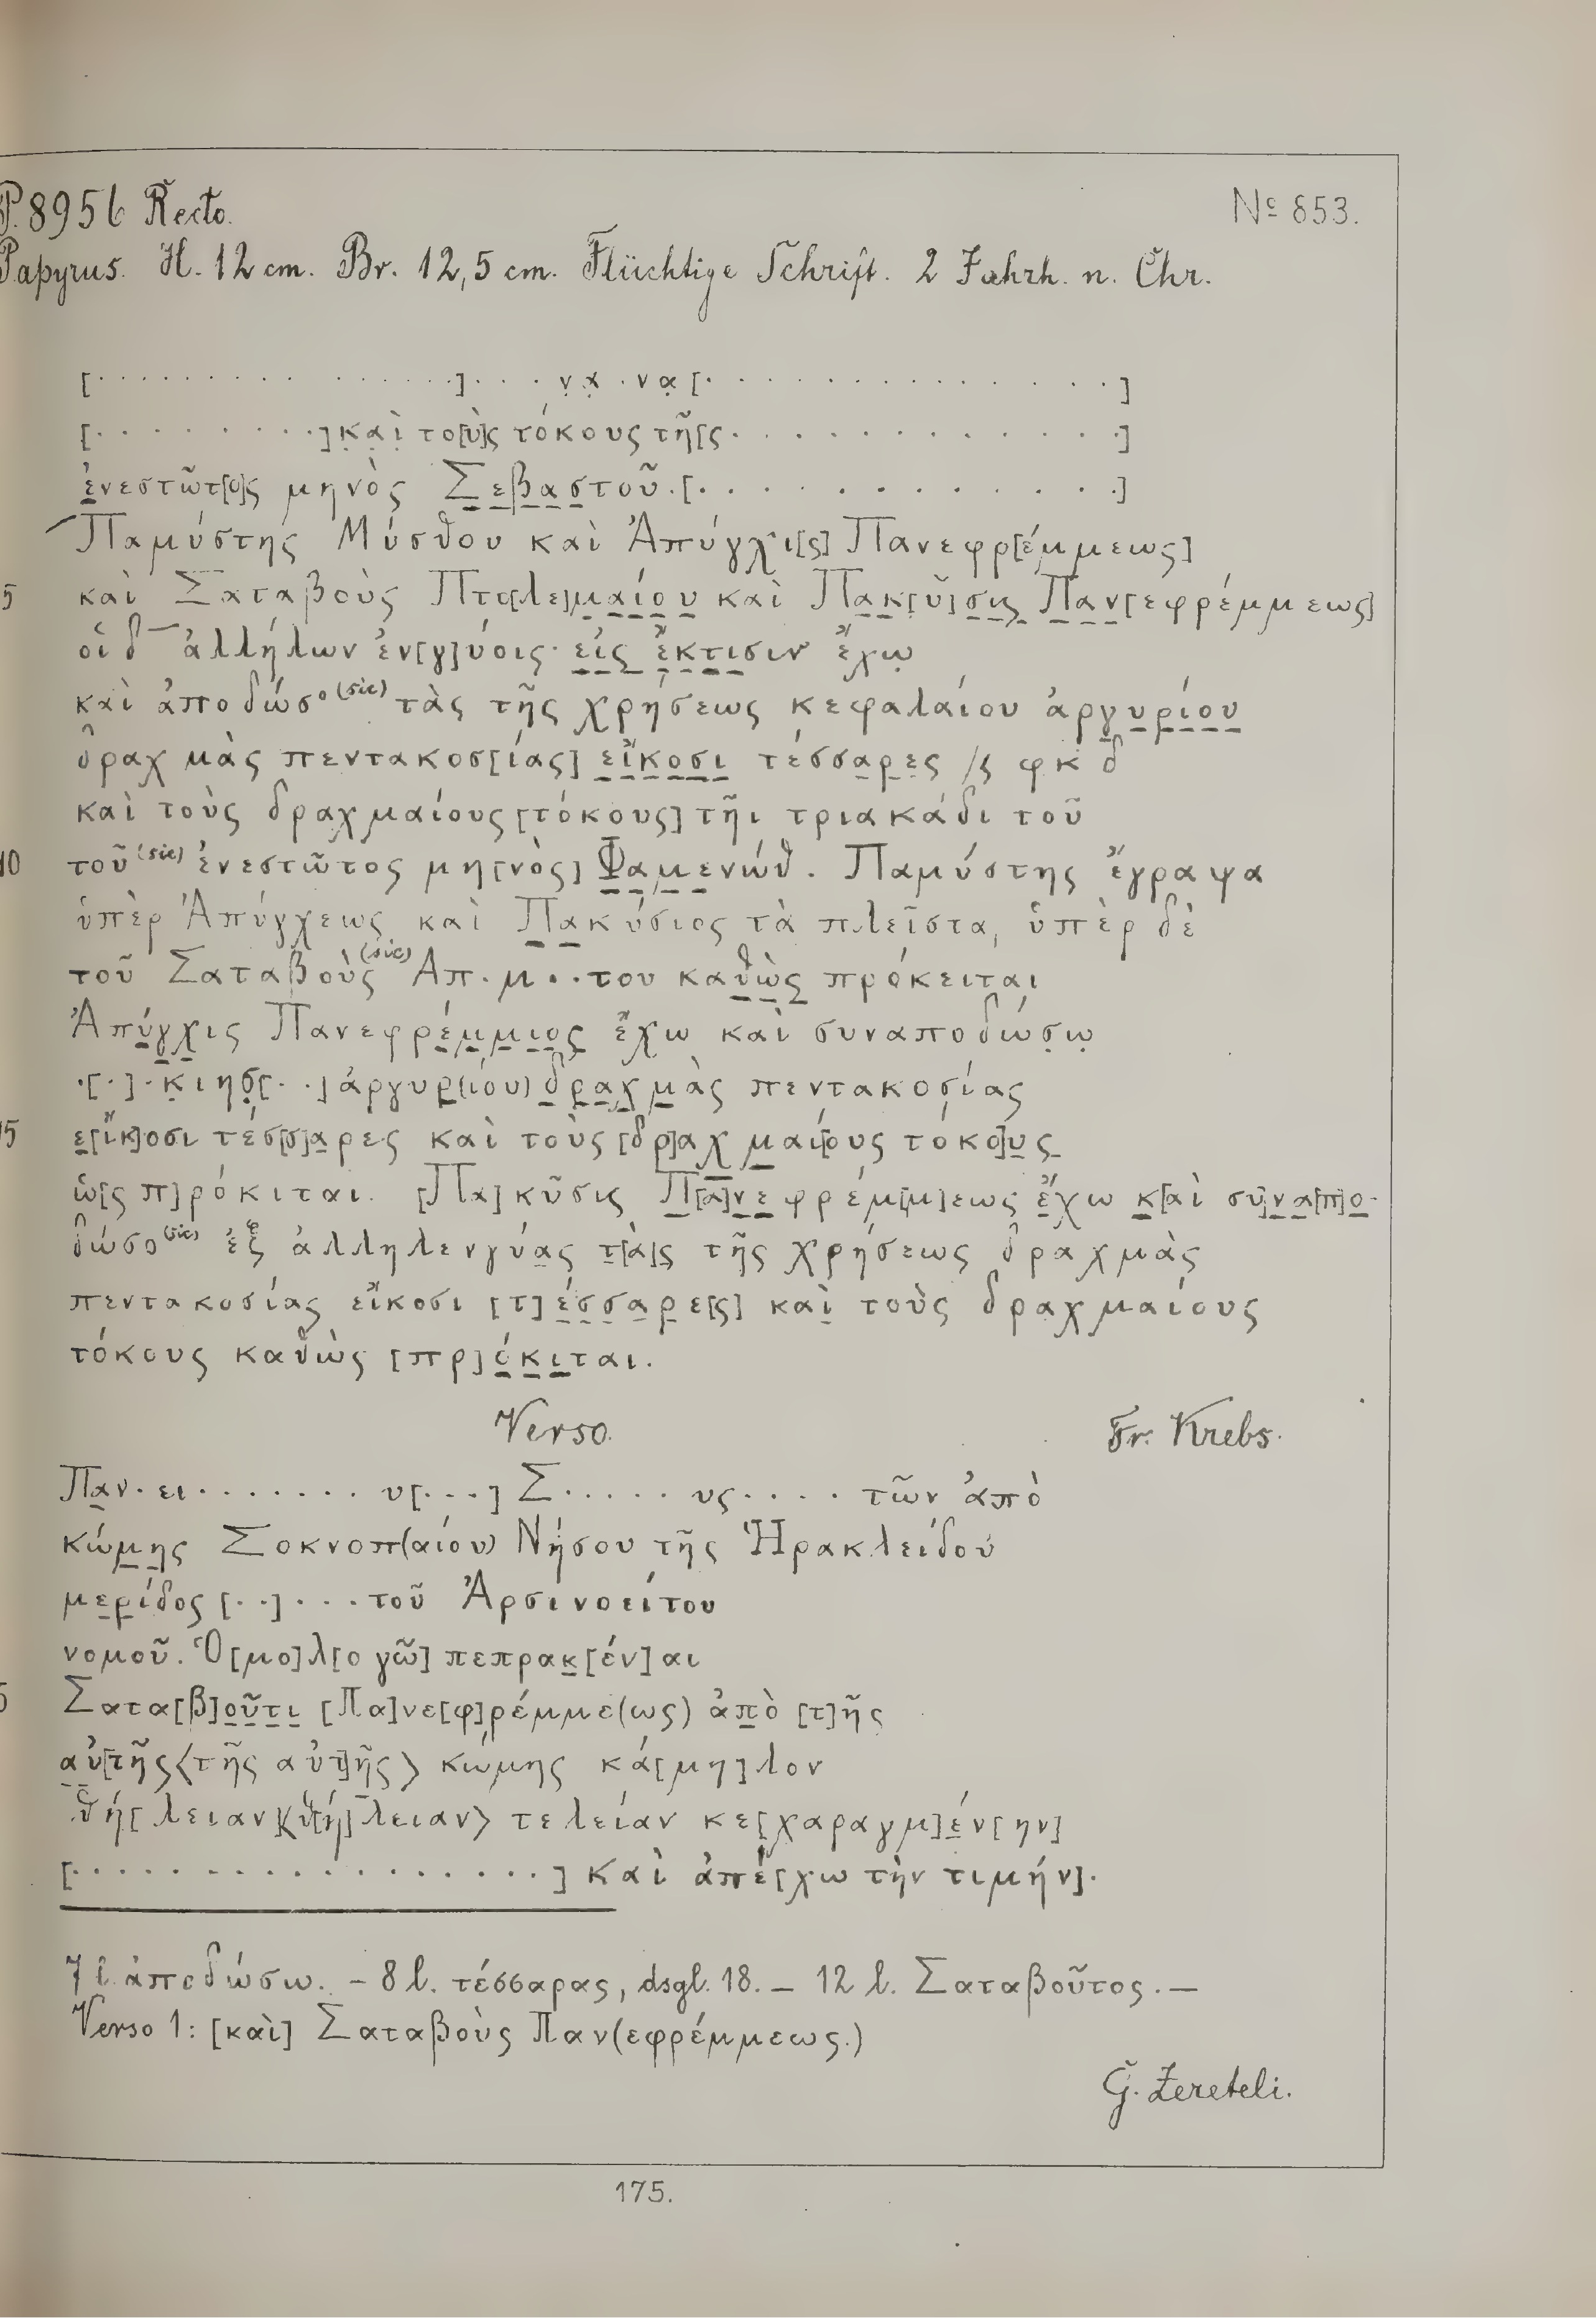 P. 8956 Recto. Nº 853.
Papyrus. H. 12 cm. Br. 12,5 cm. Flüchtige Schrift. 2 Jahrh. n. Chr.
[· · · · · · · · · · · · · ·]· · · ν̣α̣ · να̣[· · · · · · · · · · · · ·]
[· · · · · · · ·]κ̣α̣ὶ̣ το[ὺ]ς τόκους τῆ[ς· · · · · · · · · · · · ·]
ἐνεστῶτ[ο]ς μηνὸς Σεβαστοῦ.[· · · · · · · · · · ·]
Παμύστης Μύσθου καὶ Ἀπύγχι[ς] Πανεφρ[έμμεως]
5 καὶ Σαταβοὺς Πτο[λε]μαίου καὶ Πακ[ῦ]σις Παν[εφρέμμεως]
οἱ δ ἀλλήλων ἐν[γ]ύοις εἰς ἔκτισιν ἔχω̣
καὶ ἀποδώσο (sic) τὰς τῆς χρήσεως κεφαλαίου ἀργυρίου
δραχμὰς πεντακοσ[ίας] εἴκοσι τέσσαρες /ς φκδ
καὶ τοὺς δραχμαίους [τόκους] τῆι τριακάδι τοῦ
10 τοῦ (sic) ἐνεστῶτος μη[νὸς] Φαμενώθ. Παμύστης ἔγραψα
ὑπὲρ Ἀπύγχεως καὶ Πακύσιος τὰ πλεῖστα, ὑπὲρ δὲ
τοῦ Σαταβοὺς (sic) Απ·μ··του καθὼς πρόκειται
Ἀπύγχις Πανεφρέμμιος ἔχω καὶ συναποδώσ̣ω̣
·[·]·κ̣ιησ̣[··]ἀργυρ(ίου) δραχμὰς πεντακοσίας
15 ε[ἴκ]οσι τέσ[σ]αρες καὶ τοὺς [δρ]αχμαί[ους τόκο]υς
ὡ[ς π]ρόκιται. [Πα]κῦσις Π[α]νεφρέμ[μ]εως ἔχω κ[αὶ συ]να[π]ο-
δώσο (sic) ἐξ ἀλληλενγύας τ[ὰ]ς τῆς χρήσεως δραχμὰς
πεντακοσίας εἴκοσι [τ]έσσαρε[ς] καὶ τοὺς δραχμαίους
τόκους καθὼς [πρ]όκιται.
Verso. Fr. Krebs.
Παν·ει· · · · · · · υ[· · ·] Σ· · · · · υς· · · · τῶν ἀπὸ
κώμης Σοκνοπ(αίου) Νήσου τῆς Ἡρακλείδου
μερίδος [··]· · · τοῦ Ἀρσινοείτου
νομοῦ. Ὁ[μο]λ[ογῶ] πεπρακ[έν]αι
5 Σατα[β]οῦτι [Πα]νε[φ]ρέμμε(ως) ἀπὸ [τ]ῆς
αὐ[τῆς⟨τῆς αὐτ]ῆς⟩ κώμης κά[μη]λον
θή[λειαν]⟨θ[ή]λειαν⟩ τελείαν κε[χαραγμ]έν[ην]
[· · · · · · · · · · · · · · · ·] καὶ ἀπέ[χω τὴν τιμήν].
7 l. ἀποδώσω. – 8 l. τέσσαρας, dsgl. 18. – 12 l. Σαταβοῦτος. –
Verso 1: [καὶ] Σαταβοὺς Παν(εφρέμμεως.)
G. Zereteli.
175.